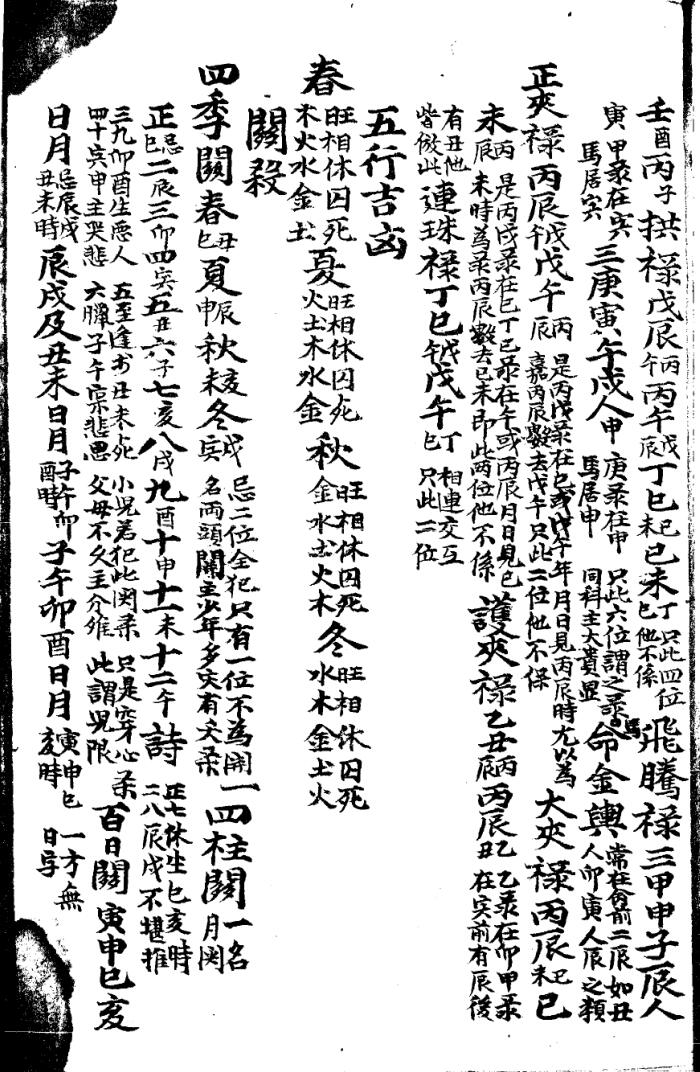 壬酉丙子拱祿戊辰午丙丙午辰戊丁巳未巳己未巳丁只此四位他不係飛騰祿三甲申子辰人
寅甲彔在寅馬居寅三庚寅午戌人申庚彔在申馬居申只此六位謂之彔馬同科主大貴
命金輿常在命前二辰如丑人卯寅人辰之類
正夾祿丙辰午戊戊午辰丙是丙戊彔在巳或戊午年月日見丙辰時尤以為嘉丙辰數去戊午只此二位他不保大夾祿丙辰未巳己
未辰丙是丙戊彔在巳丁己彔在午或丙辰月日見己未時為彔丙辰數去己未即此两位他不係護夾祿乙丑辰丙丙辰丑乙乙彔在卯甲彔在寅前有辰後
有丑他皆倣此連珠祿丁巳午戊戊午巳丁相連交互只此二位
五行吉凶
春旺相休囚死木火水金土夏旺相休囚死火土木水金秋旺相休囚死金水土火木冬旺相休囚死水木金土火
關殺
四季關春巳丑夏申辰秋未亥冬寅戌忌二位全犯只有一位不為関名両頭関主少年多灾有夭柔一四柱關一名月関
正忌巳二辰三卯四寅五丑六子七亥八戌九酉十申十一未十二午詩正七休生巳亥時二八辰戌不堪推
三九卯酉生悪人四十寅申主哭悲五至逢牛丑未死六臘子午宗悲思小児若犯此関柔父母不久主分離只是穿心柔此謂児限百日關寅申巳亥
日月忌辰戌丑未時辰戌及丑未日月子午卯酉時子午卯酉日月寅申巳亥時一方無日字